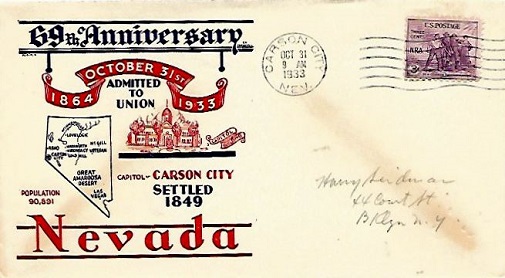 69th Anniversary
OCTOBER 31st
1864 1933
ADMITTED
TO
UNION
CAPITOL
CAPITOL - CARSON CITY
SETTLED
1849
LOVELOCK
RENO
CARSON CITY
GREAT
AMARGOSA
DESERT
LAS
VEGAS
POPULATION
90,891
Nevada
CARSON CITY
OCT 31
9 AM
1933
NEV.
U.S. POSTAGE
THREE CENT
NRA
3¢
Harry
44 Court St
Bklyn N.Y.